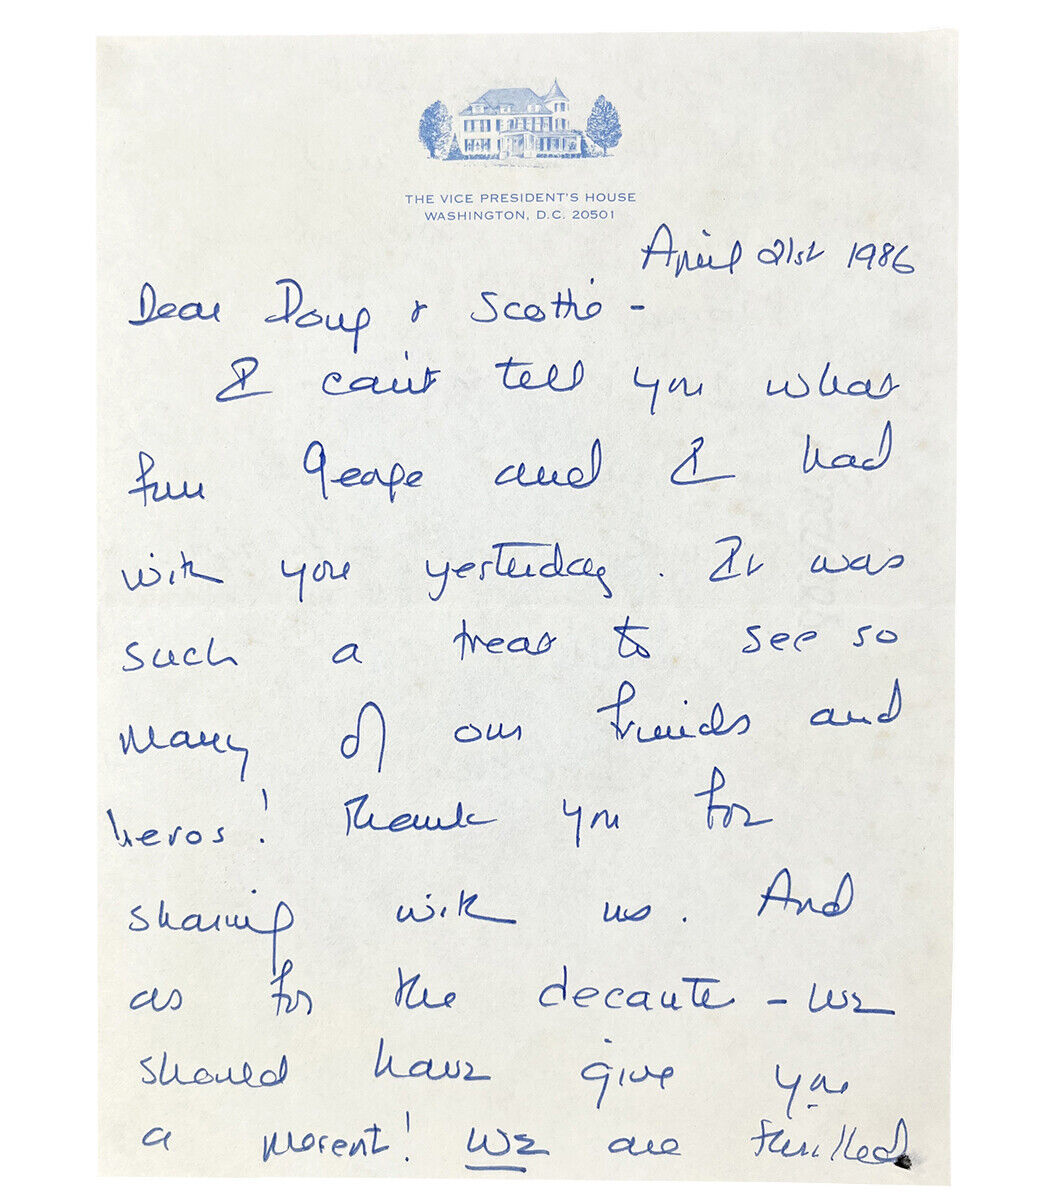 THE VICE PRESIDENT'S HOUSE
WASHINGTON, D.C. 20501
April 21st 1986
Dear Doug & Scottie -
I can't tell you what
fun George and I had
with you yesterday. It was
such a treat to see so
many of our friends and
heros! Thank you for
sharing with us. And
as for the decante - we
should have give you
a present! We are thrilled